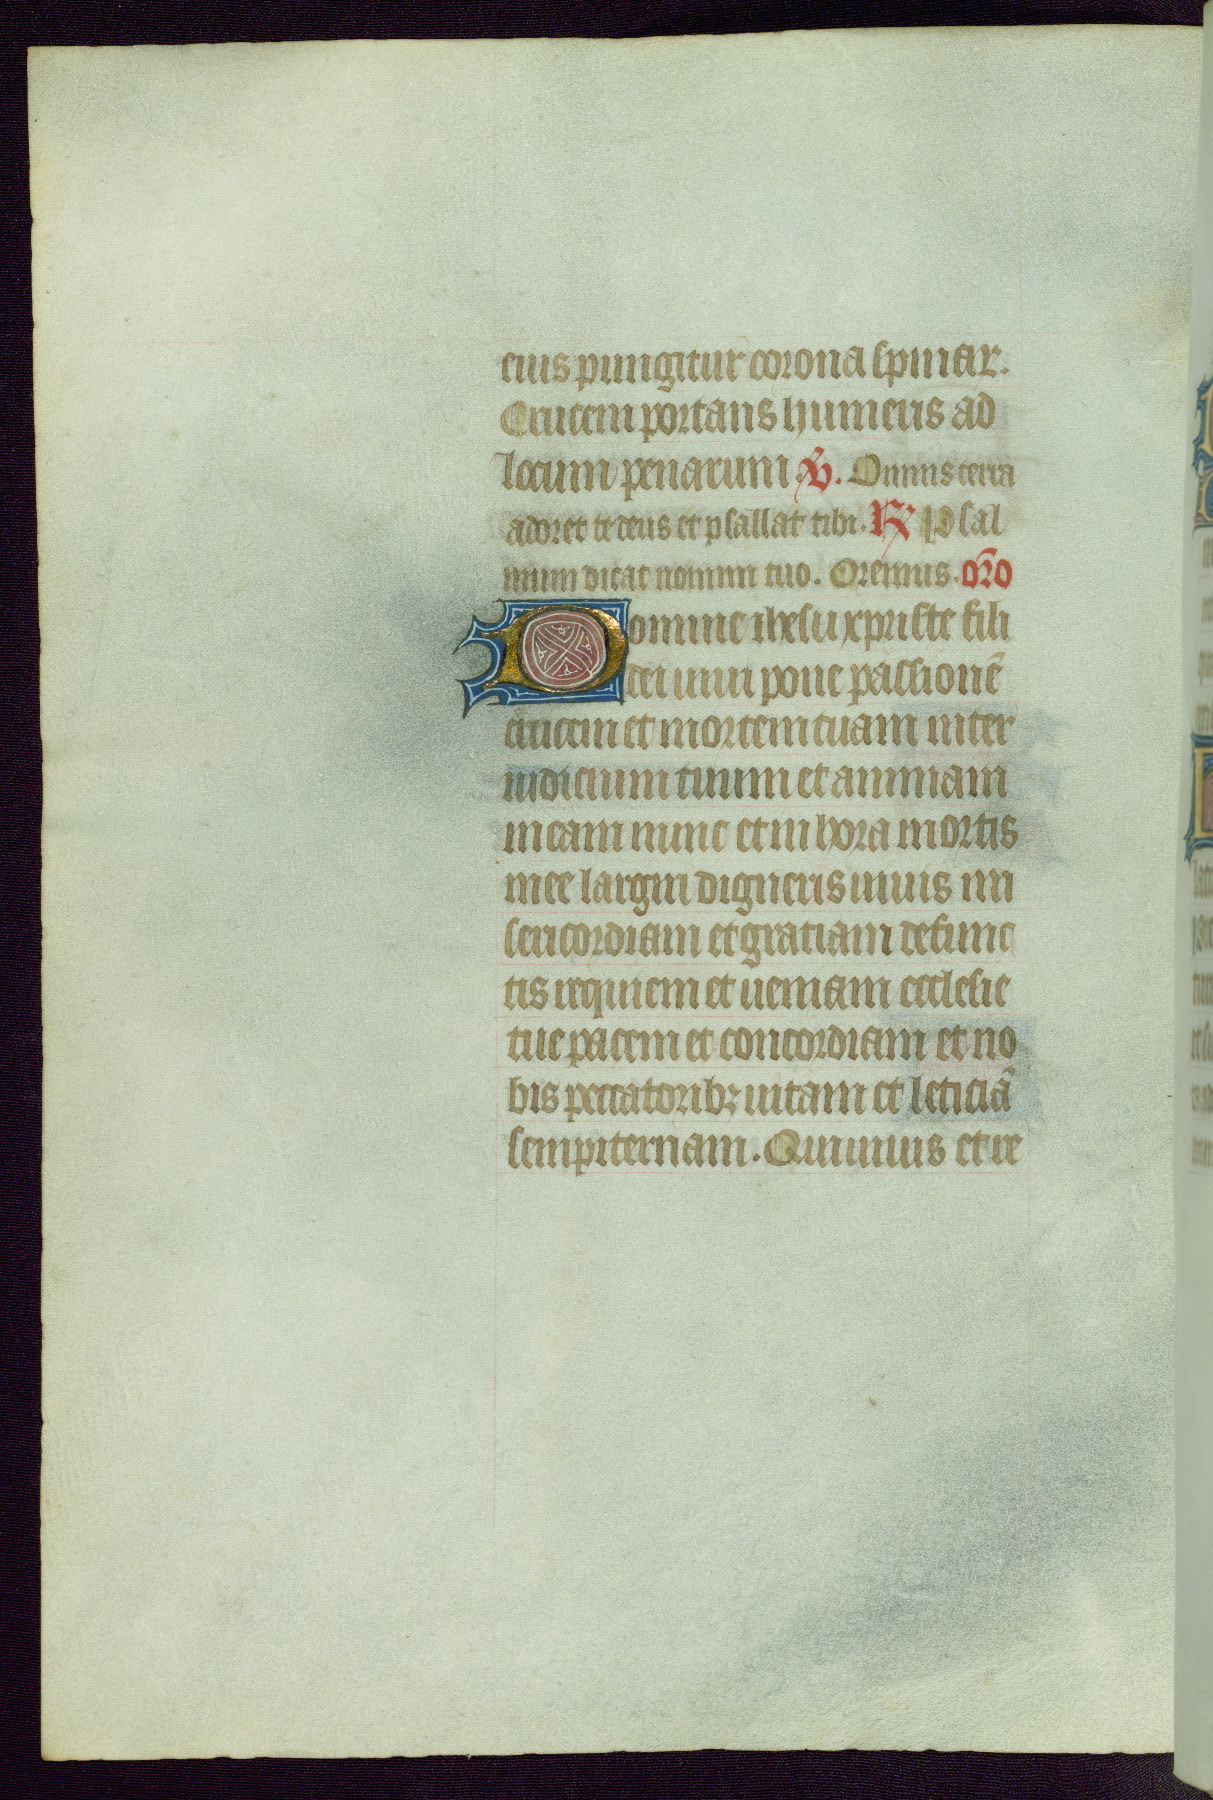 eius pungitur corona spinaꝝ.
Crucem portans humeris ad
locum penarum. ℣. Omnis terra
adoret te deus et psallat tibi. ℟ Psal
mum dicat nomini tuo. Oremus. or̄o
Domine ihesu xpriste fili
dei uiui pone passionē
crucem et mortem tuam inter
iudicium tuum et animam
meam nunc et in hora mortis
mee largiri digneris uiuis mi
sericordiam et gratiam defunc
tis requiem et ueniam ecclesie
tue pacem et concordiam et no
bis peccatoribꝫ uitam et leticiā
sempiternam. Qui uiuis et re